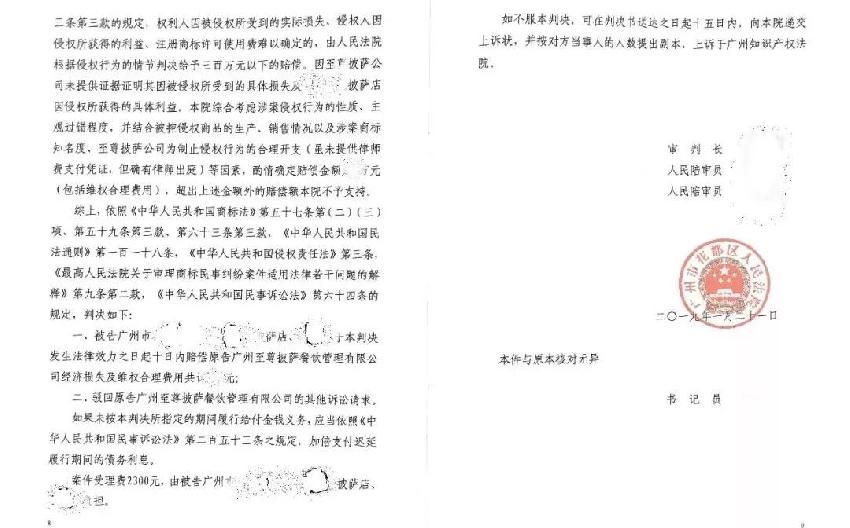 二条第三款的规定，权利人因被侵权所受到的实际损失、侵权人因
侵权所获得的利益、注册商标许可使用费难以确定的，由人民法院
根据侵权行为的情节判决给予三百万元以下的赔偿。因至尊披萨公
司未提供证据证明其因被侵权所受到的具体损失及 披萨店
因侵权所获得的具体利益，本院综合考虑涉案侵权行为的性质、主
观过错程度，并结合被控侵权商品的生产、销售情况以及涉案商标
知名度、至尊披萨公司为制止侵权行为的合理开支（虽未提供律师
费支付凭证，但确有律师出庭）等因素，酌情确定赔偿金额 万元
（包括维权合理费用），超出上述金额外的赔偿额本院不予支持。
综上，依照《中华人民共和国商标法》第五十七条第（二）（三）
项、第五十九条第三款、第六十三条第三款，《中华人民共和国民
法通则》第一百一十八条，《中华人民共和国侵权责任法》第三条，
《最高人民法院关于审理商标民事纠纷案件适用法律若干问题的解
释》第九条第二款，《中华人民共和国民事诉讼法》第六十四条的
规定，判决如下：
一、被告广州市 萨店、 于本判决
发生法律效力之日起十日内赔偿原告广州至尊披萨餐饮管理有限公
司经济损失及维权合理费用共 元；
二、驳回原告广州至尊披萨餐饮管理有限公司的其他诉讼请求。
如果未按本判决所指定的期间履行给付金钱义务，应当依照《中
华人民共和国民事诉讼法》第二百五十三条之规定，加倍支付迟延
履行期间的债务利息。
案件受理费2300元，由被告广州市 披萨店、
担。
8
如不服本判决，可在判决书送达之日起十五日内，向本院递交
上诉状，并按对方当事人的人数提出副本，上诉于广州知识产权法
院。
审 判 长
人民陪审员
人民陪审员
广州市花都区人民法院
二〇一九年一月三十一日
本件与原本核对无异
书 记 员
9